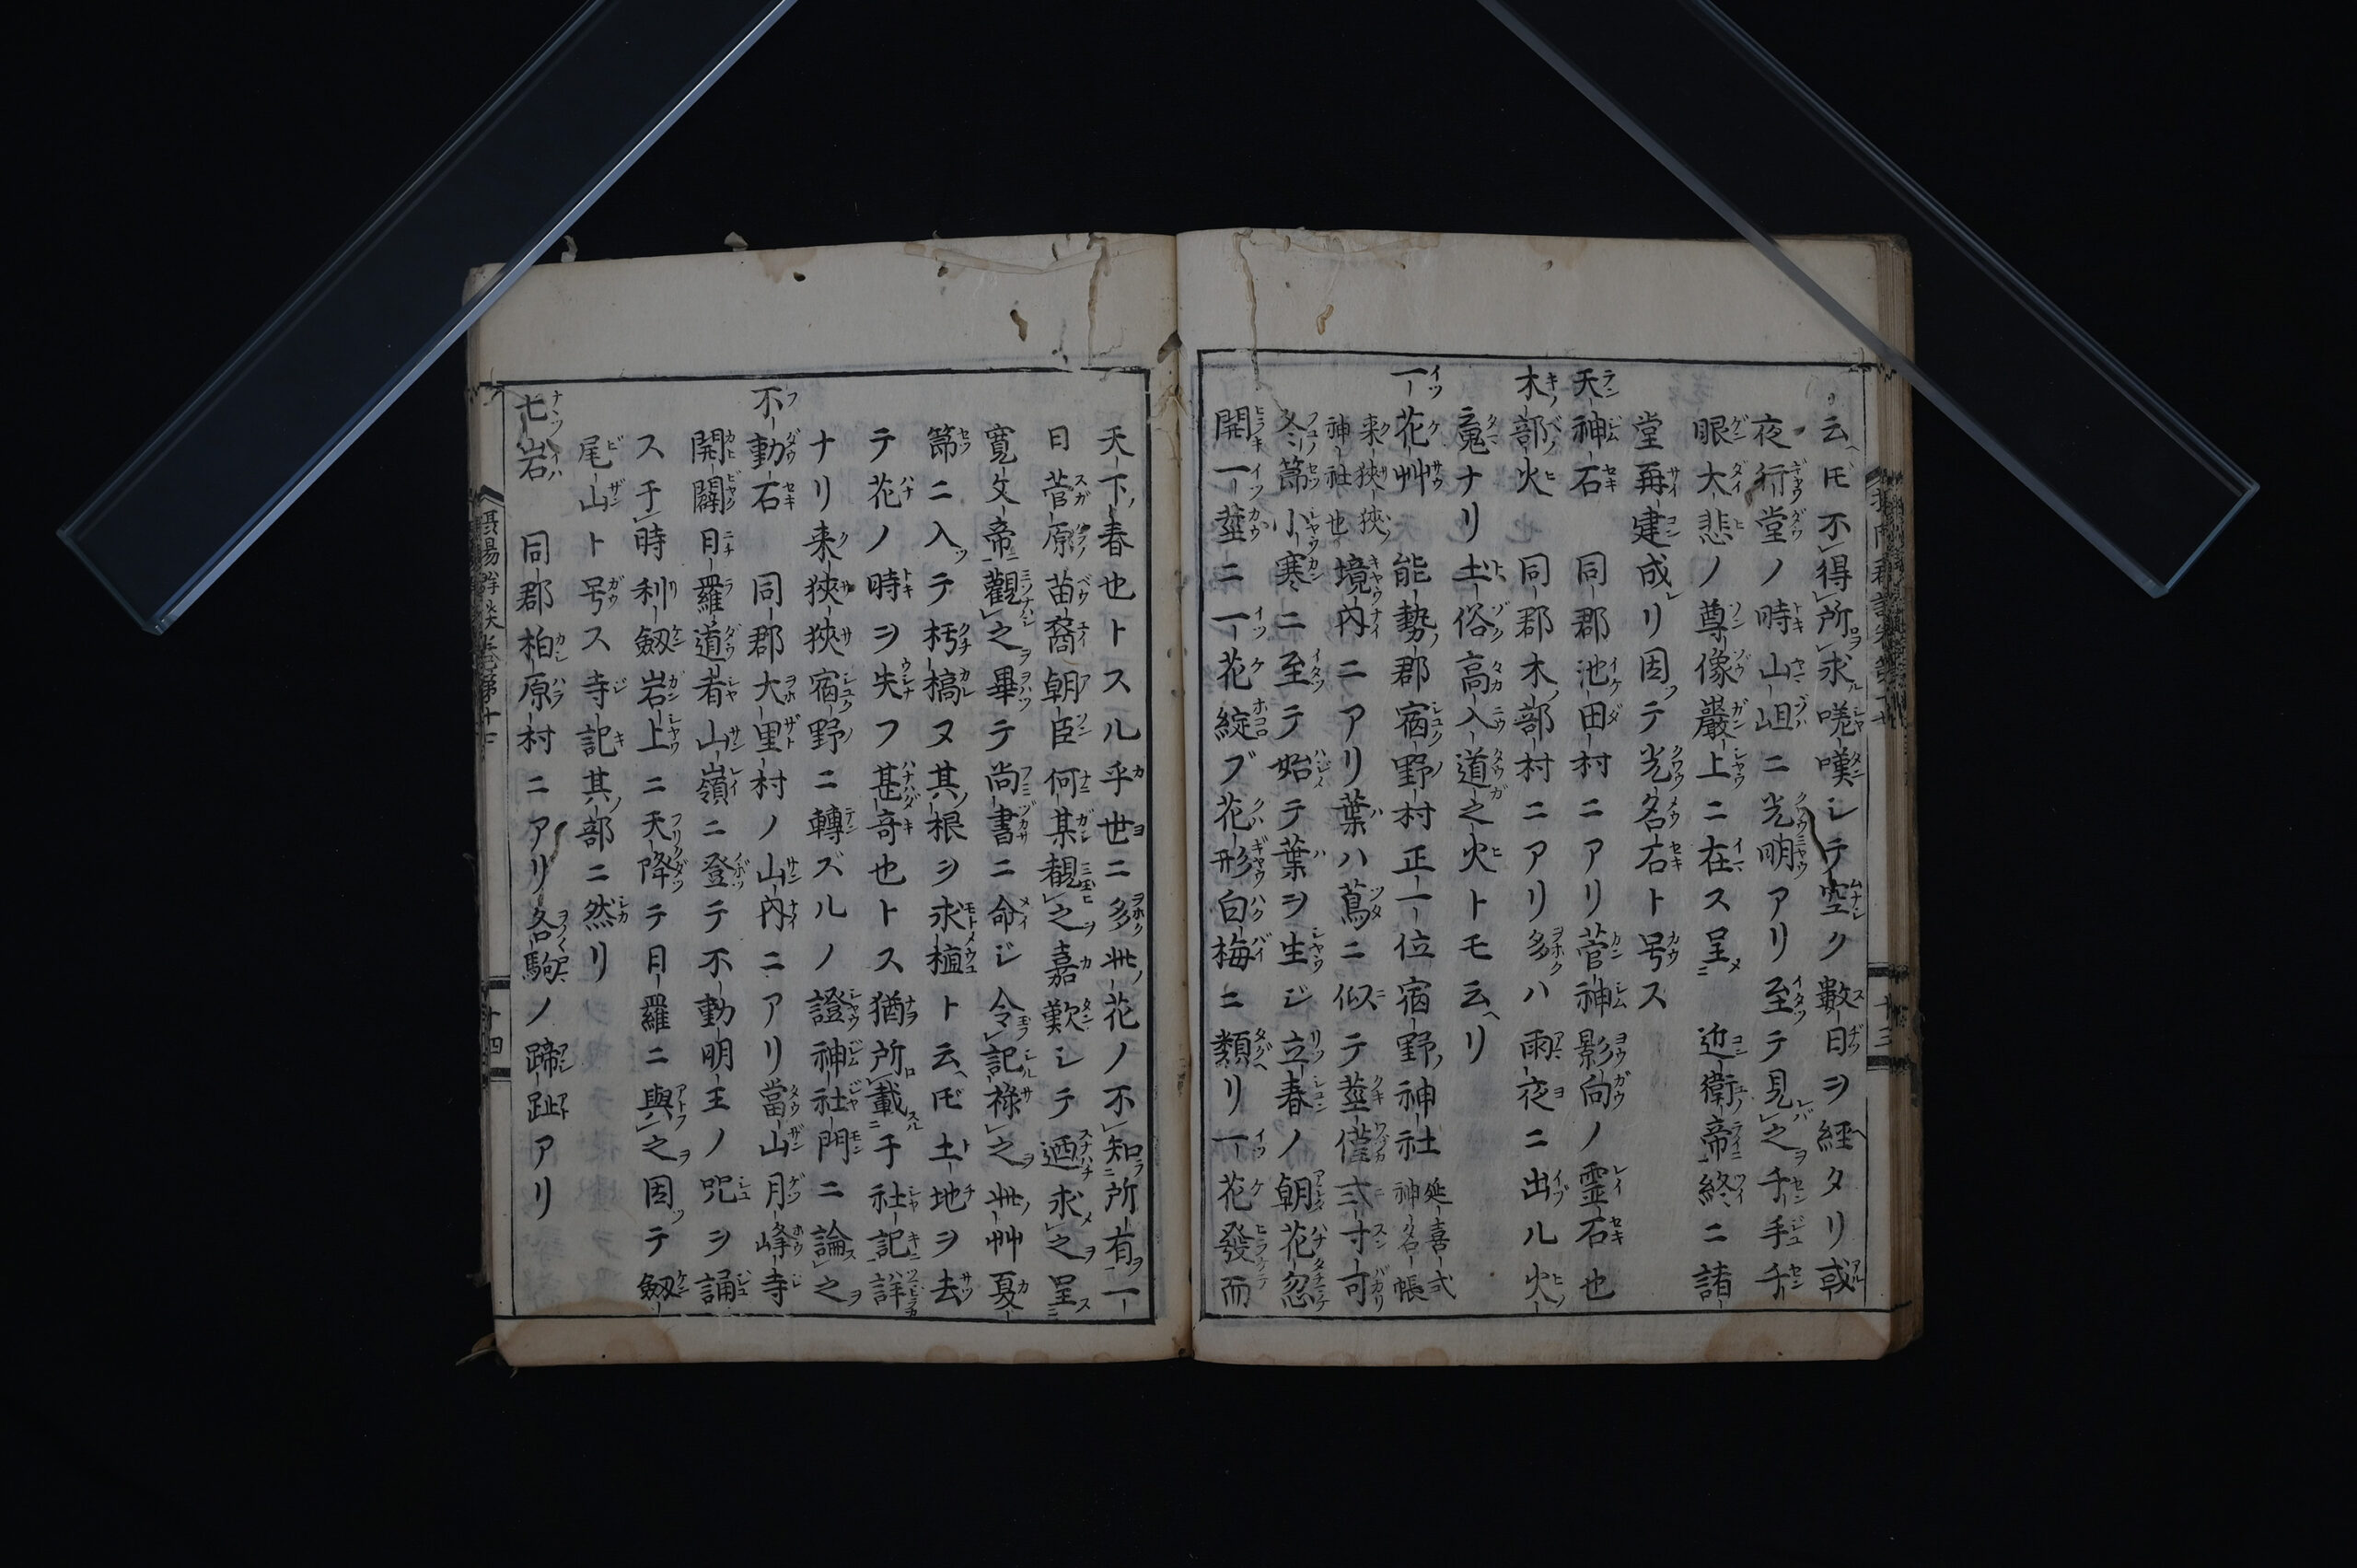 云ヘ𪜈不得所求嗟嘆シテ空ク數日ヲ經タリ或
夜行堂ノ時山岨ニ光明アリ至テ見之千手千
眼大悲ノ尊像巖上ニ在ス呈 近衛帝終ニ諸
堂再建成リ因テ光名石ト号ス
天神石 同郡池田村ニアリ菅神影向ノ靈石也
木部火 同郡木ノ部村ニアリ多クハ雨夜ニ出ル火
魂ナリ土俗高入道之火トモ云ヘリ
一花艸 能勢郡宿野村正一位宿野神社 延喜式神名帳
来狹狹神社也 境内ニアリ葉ハ蔦ニ似テ莖僅弍寸可
冬節小寒ニ至テ始テ葉ヲ生ジ立春ノ朝花忽
開一莖ニ一花綻ブ花形白梅ニ類リ一花發而
十三
天下ノ春也トスル乎世ニ多此花ノ不知所有一
日菅原苗裔朝臣何某覩之嘉歎シテ迺求之呈
寛文帝觀之畢テ尚書ニ命ジ令記祿之此艸夏
節ニ入テ朽槁ヌ其根ヲ求植ト云ヘ𪜈土地ヲ去
テ花ノ時ヲ失フ甚奇也トス猶所載于社記詳
ナリ来狹狹宿野ニ轉ズルノ證神社門ニ論之
不動石 同郡大里村ノ山内ニアリ當山月峰寺
開闢日羅道者山嶺ニ登テ不動明王ノ咒ヲ誦
ス于時利劔岩上ニ天降テ日羅ニ與之因テ劔
尾山ト号ス寺記其部ニ然リ
七岩 同郡柏原村ニアリ各駒ノ蹄趾アリ
十四